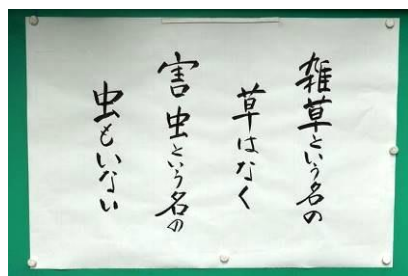 雑草という名の
草はなく
害虫という名の
虫もいない